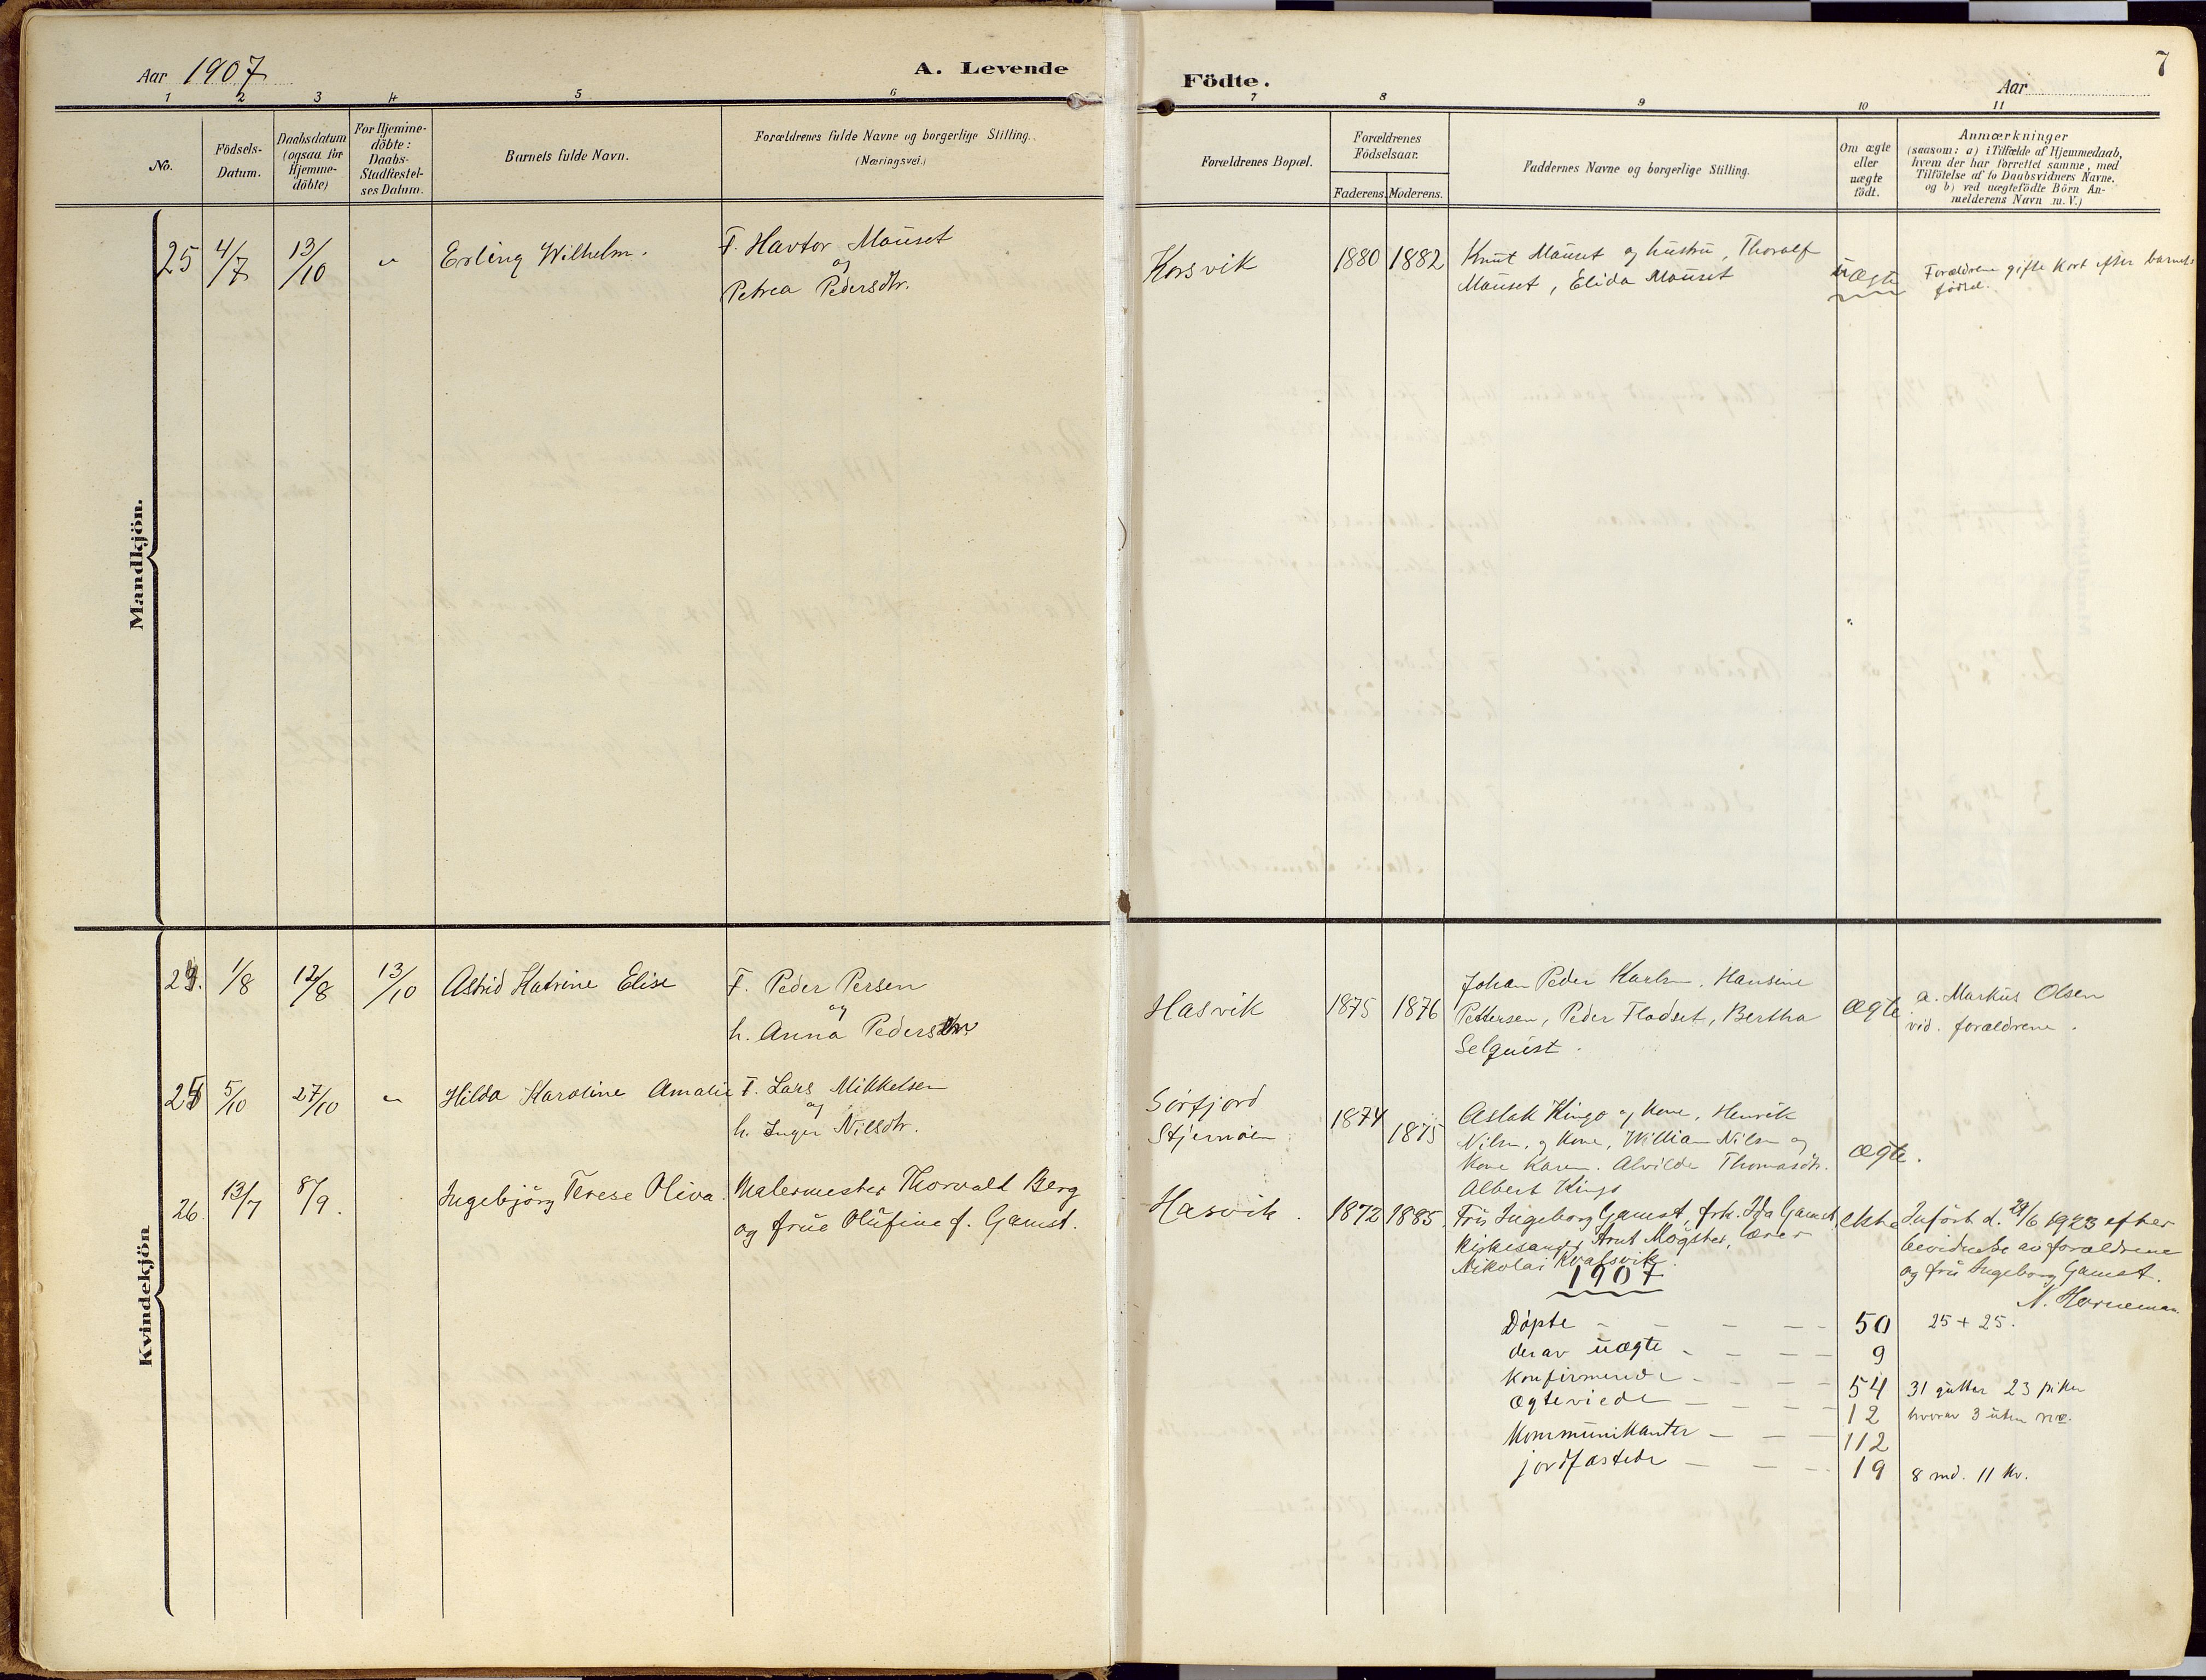 Aar 1907
A. Levende
Födte.
Aar
7
1 2 3 4 5 6 7 8 9 10 11
No.
Födsels-
Datum.
Daabsdatum
(ogsaa for
Hjemme-
döbte)
For Hjemme-
döbte:
Daabs-
Stadfæstel-
ses Datum.
Barnets fulde Navn.
Forældrenes fulde Navne og borgerlige Stilling.
(Næringsvei.)
Forældrenes Bopæl.
Forældrenes
Födselsaar.
Faderens. Moderens.
Faddernes Navne og borgerlige Stilling.
Om ægte
eller
uægte
födt.
Anmærkninger
(saasom: a) i Tilfælde af Hjemmedaab,
hvem der har forrettet samme, med
Tilföielse af to Daabsvidners Navne.
og b) ved uægtefödte Börn An-
melderens Navn m. V.)
Mandkjön.
25 4/7 13/10 " Erling Wilhelm.
F. Havtor Mauset
og
Petrea Pedersdtr.
Korsvik 1880 1882
Knut Mauset og hustru, Thoralf
Mauset, Elida Mauset
uægte
Forældrene gifte kort efter barnets
fødsel.
Kvindekjön
24. 1/8 12/8 13/10 Astrid Katrine Elise
F. Peder Persen
og
h. Anna Pedersdtr
Hasvik 1875 1876
Johan Peder Karlsn, Hansine
Pettersen, Peder Flodset, Bertha
Selquist.
ægte
a. Markus Olsen
vid. forældrene.
25 5/10 27/10 " Hilda Karoline Amalie
F. Lars Mikkelsen
og
h. Inger Nilsdtr.
Sørfjord
Stjernøen
1874 1875
Aslak Kingo og kone, Henrik
Nilsn. og kone, William Nilsn og
kone Karen. Alvilde Thomasdtr.
Albert Kingo
ægte.
26. 13/7 8/9. Ingebjörg Terese Oliva.
Malermester Thorvald Berg
og frue Olufine f. Gamst.
Hasvik. 1872 1885.
Fru Ingeborg Gamst, frk. Ida Gamst,
Kirkesanger Arnt Møgster, lærer
Nikolai Kvalsvik.
ekte
Inført d. 21/6 1923 efter
bevidnelse av forældrene
og fru Ingeborg Gamst.
N. Horneman.
1907
Døpte - - - - - 50 25 + 25.
derav uægte - - - - 9
Konfirmerede - - - - 54 31 gutter 23 piker
Ægteviede - - - - 12 hvorav 3 uten
Kommunikanter - - - 112
jordfæstede - - - 19 8 md. 11 kv.